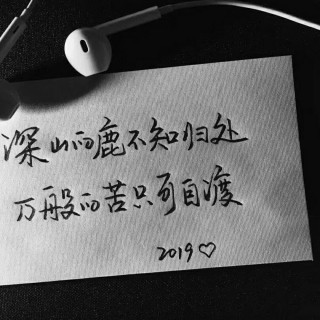 深山的鹿不知归处
万般的苦只可自渡
2019♡